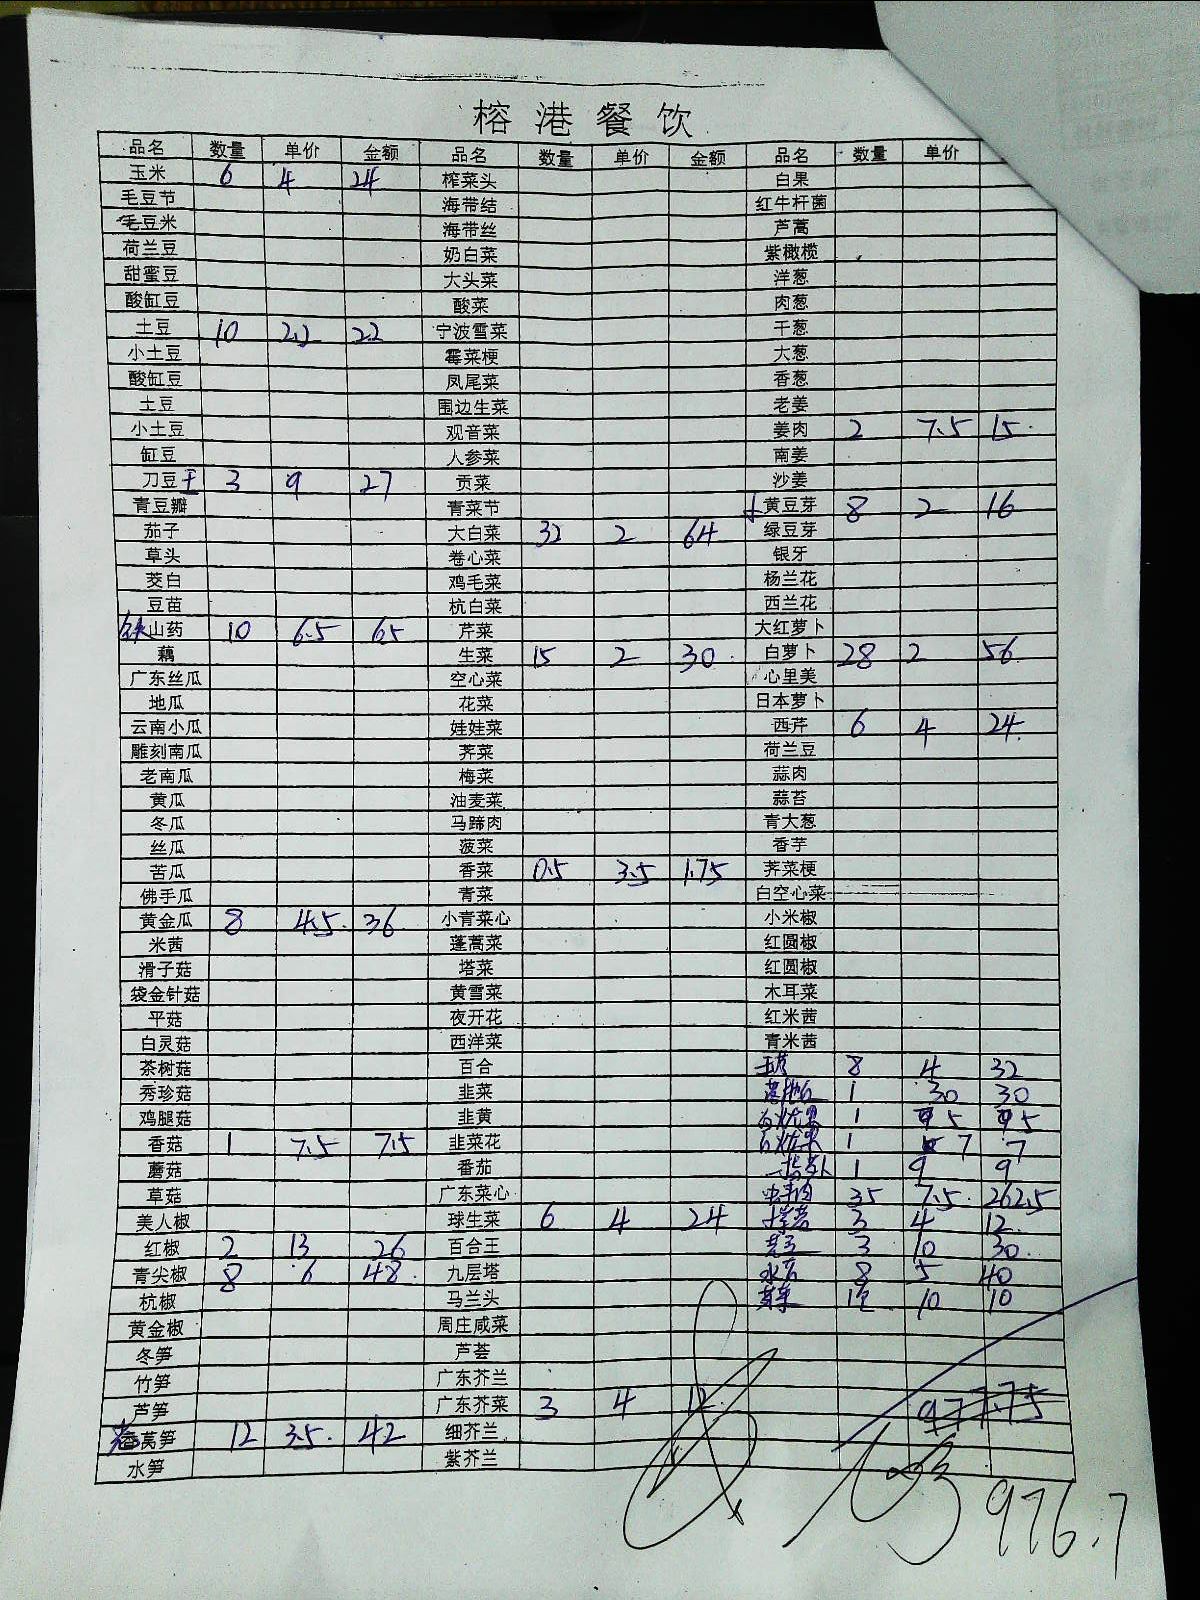 榕港餐饮
品名 数量 单价 金额 品名 数量 单价 金额 品名 数量 单价
玉米 6 4 24 榨菜头 白果
毛豆节 海带结 红牛杆菌
毛豆米 海带丝 芦蒿
荷兰豆 奶白菜 紫橄榄
甜蜜豆 大头菜 洋葱
酸缸豆 酸菜 肉葱
土豆 10 2.2 22 宁波雪菜 干葱
小土豆 霉菜梗 大葱
酸缸豆 凤尾菜 香葱
土豆 围边生菜 老姜
小土豆 观音菜 姜肉 2 7.5 15
缸豆 人参菜 南姜
刀豆王 3 9 27 贡菜 沙姜
青豆瓣 青菜节 黄豆芽 8 2 16
茄子 大白菜 32 2 64 绿豆芽
草头 卷心菜 银牙
茭白 鸡毛菜 杨兰花
豆苗 杭白菜 西兰花
铁山药 10 6.5 65 芹菜 大红萝卜
藕 生菜 15 2 30 白萝卜 28 2 56
广东丝瓜 空心菜 心里美
地瓜 花菜 日本萝卜
云南小瓜 娃娃菜 西芹 6 4 24
雕刻南瓜 荠菜 荷兰豆
老南瓜 梅菜 蒜肉
黄瓜 油麦菜 蒜苔
冬瓜 马蹄肉 青大葱
丝瓜 菠菜 香芋
苦瓜 香菜 0.5 3.5 1.75 荠菜梗
佛手瓜 青菜 白空心菜
黄金瓜 8 4.5 36 小青菜心 小米椒
米茜 蓬蒿菜 红圆椒
滑子菇 塔菜 红圆椒
袋金针菇 黄雪菜 木耳菜
平菇 夜开花 红米茜
白灵菇 西洋菜 青米茜
茶树菇 百合 8 4 32
秀珍菇 韭菜 1 30 30
鸡腿菇 韭黄 1 5 5
香菇 1 7.5 7.5 韭菜花 1 7 7
蘑菇 番茄 1 9 9
草菇 广东菜心 35 7.5 262.5
美人椒 球生菜 6 4 24 3 4 12
红椒 2 13 26 百合王 3 10 30
青尖椒 8 6 48 九层塔 8 5 40
杭椒 马兰头 10 10
黄金椒 周庄咸菜
冬笋 芦荟
竹笋 广东芥兰
芦笋 广东芥菜 3 4 12 977.75
莴笋 12 3.5 42 细芥兰
水笋 紫芥兰
976.7